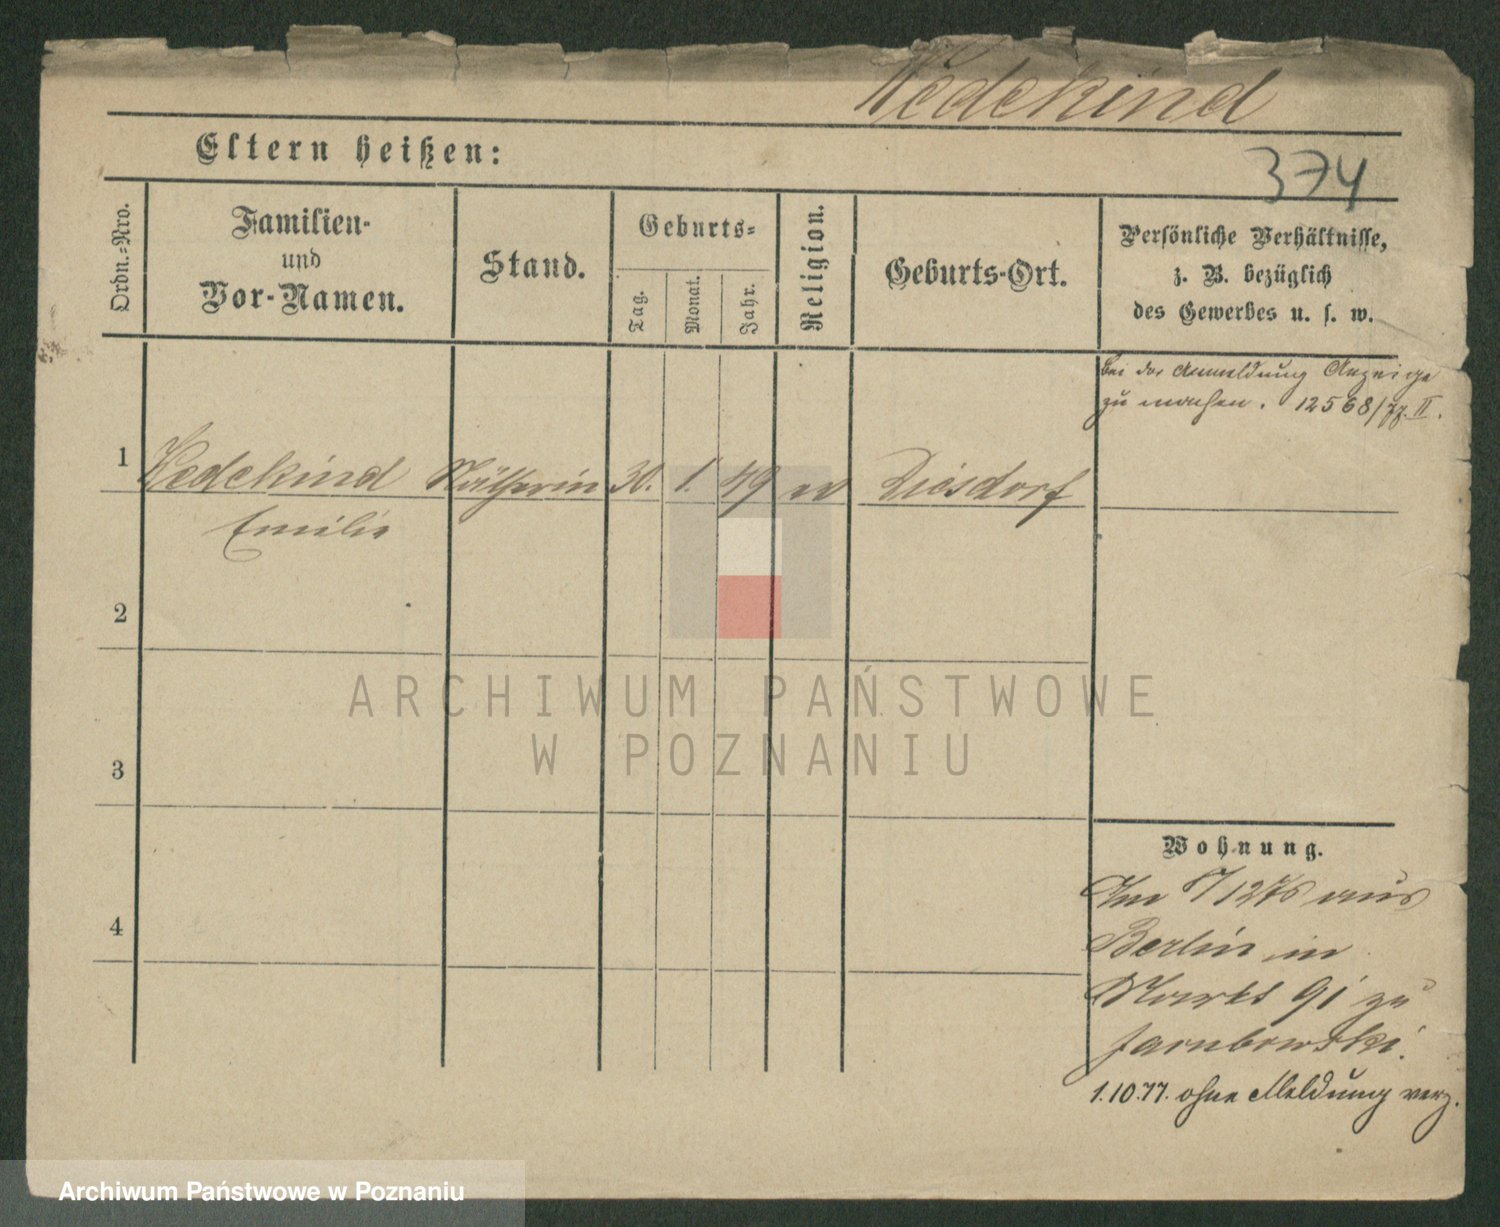 Wedekind
374
Eltern heißen:
Ordn.-Nro.
Familien-
und
Vor-Namen.
Stand.
Geburts-
Tag.
Monat.
Jahr.
Religion.
Geburts-Ort.
Persönliche Verhältnisse,
z. B. bezüglich
des Gewerbes u. s. w.
bei der Anmeldung Anzeige
zu machen. 12568/77. II.
1 Wedekind Nätherin 30. 1. 49 Diesdorf
Emilie
2
3
4
ARCHIWUM PAŃSTWOWE
W POZNANIU
Wohnung.
aus
Berlin in
Markt 91 zu
1.10.77. ohne Meldung verz.
Archiwum Państwowe w Poznaniu